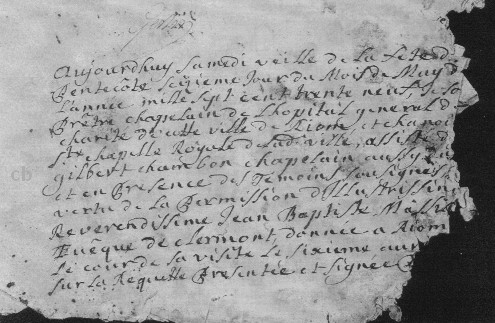 Aujourdhuy Samedi veille de la fete de
Pentecôte Seizieme Jour du Mois de May d
L'année mille sept cent trente neuf Je so
Prêtre chapelain de L'hopital general de
charité de cette ville de Riom, et chanoi
Ste chapelle Royale dudi ville, assisté d
gilbert chambon chapelain aussy
et en Presence des Temoins soussignes
vertu de la Permission d'Illustrissim
Reverendissime Jean Baptiste Massil
Evêque de clermont, donnée a Riom
le cour de sa visite le Sixieme
sur la Requette Presentée et signée